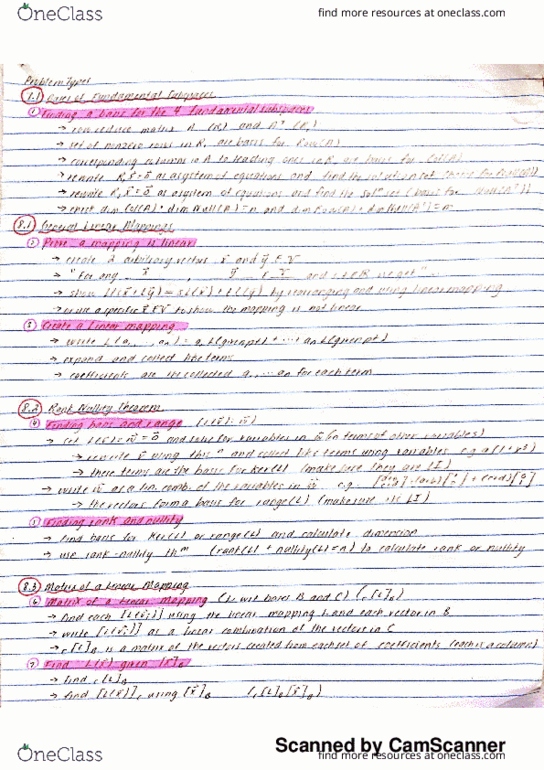 OneClass
find more resources at oneclass.com
Problem Types
7.1 Bases of Fundamental Subspaces
① Finding a basis for the 4 fundamental subspaces
→ row reduce matrix A (R₁) and Aᵀ (R₂)
→ set of nonzero rows in R, are basis for Row(A)
→ corresponding columns in A to leading ones in R, are basis for Col(A)
→ rewrite R, x̄ = ō as a system of equations and find the solution set
→ rewrite R, x̄ = ō as a system of equations and find the solⁿ set (basis for Null(Aᵀ))
8.1 General Linear Mappings
② Prove a mapping is linear
→ create 2 arbitrary vectors x̄ and ȳ ∈ V
→ "For any x̄ ȳ ∈ V and s ∈ R we get"
→ show L(sx̄ + ȳ) = sL(x̄) + L(ȳ) by rearranging and using linear mapping
→ use a specific x̄ ∈ V to show the mapping is not linear
③ Create a Linear mapping
→ write L(a, ..., an) = a, L(given pt) + ... an L(given pt)
→ expand and collect like terms
→ coefficients are the collected a, ... an for each term
8.2 Rank Nullity Theorem
④ Finding basis and range (L(v̄) = w̄)
→ set L(v̄) = w̄ = ō and solve for variables in v̄ (in terms of other variables)
→ rewrite v̄ using this and collect like terms using variables e.g
→ these terms are the basis for Ker(L) (make sure they are LI)
→ write w̄ as a lin. comb. of the variables in w̄ e.g
→ the vectors form a basis for range(L) (make sure LI)
⑤ Finding rank and nullity
→ find basis for Ker(L) or range(L) and calculate dimension
→ use rank-nullity thᵐ (rank(L) + nullity(L) = n) to calculate rank or nullity
8.3 Matrix of a Linear Mapping
⑥ Matrix of a Linear Mapping (L, with bases B and C) (c[L]B)
→ find each [L(v̄ᵢ)] using the linear mapping L and each vector in B
→ write [L(v̄ᵢ)] as a linear combination of the vectors in C
→ c[L]B is a matrix of the vectors created from each set of coefficients (each is a column)
⑦ Find L(x̄) given [x̄]B
→ find c[L]B
→ find [L(x̄)]c using [x̄]B (c[L]B [x̄]B)
Scanned by CamScanner
OneClass
find more resources at oneclass.com